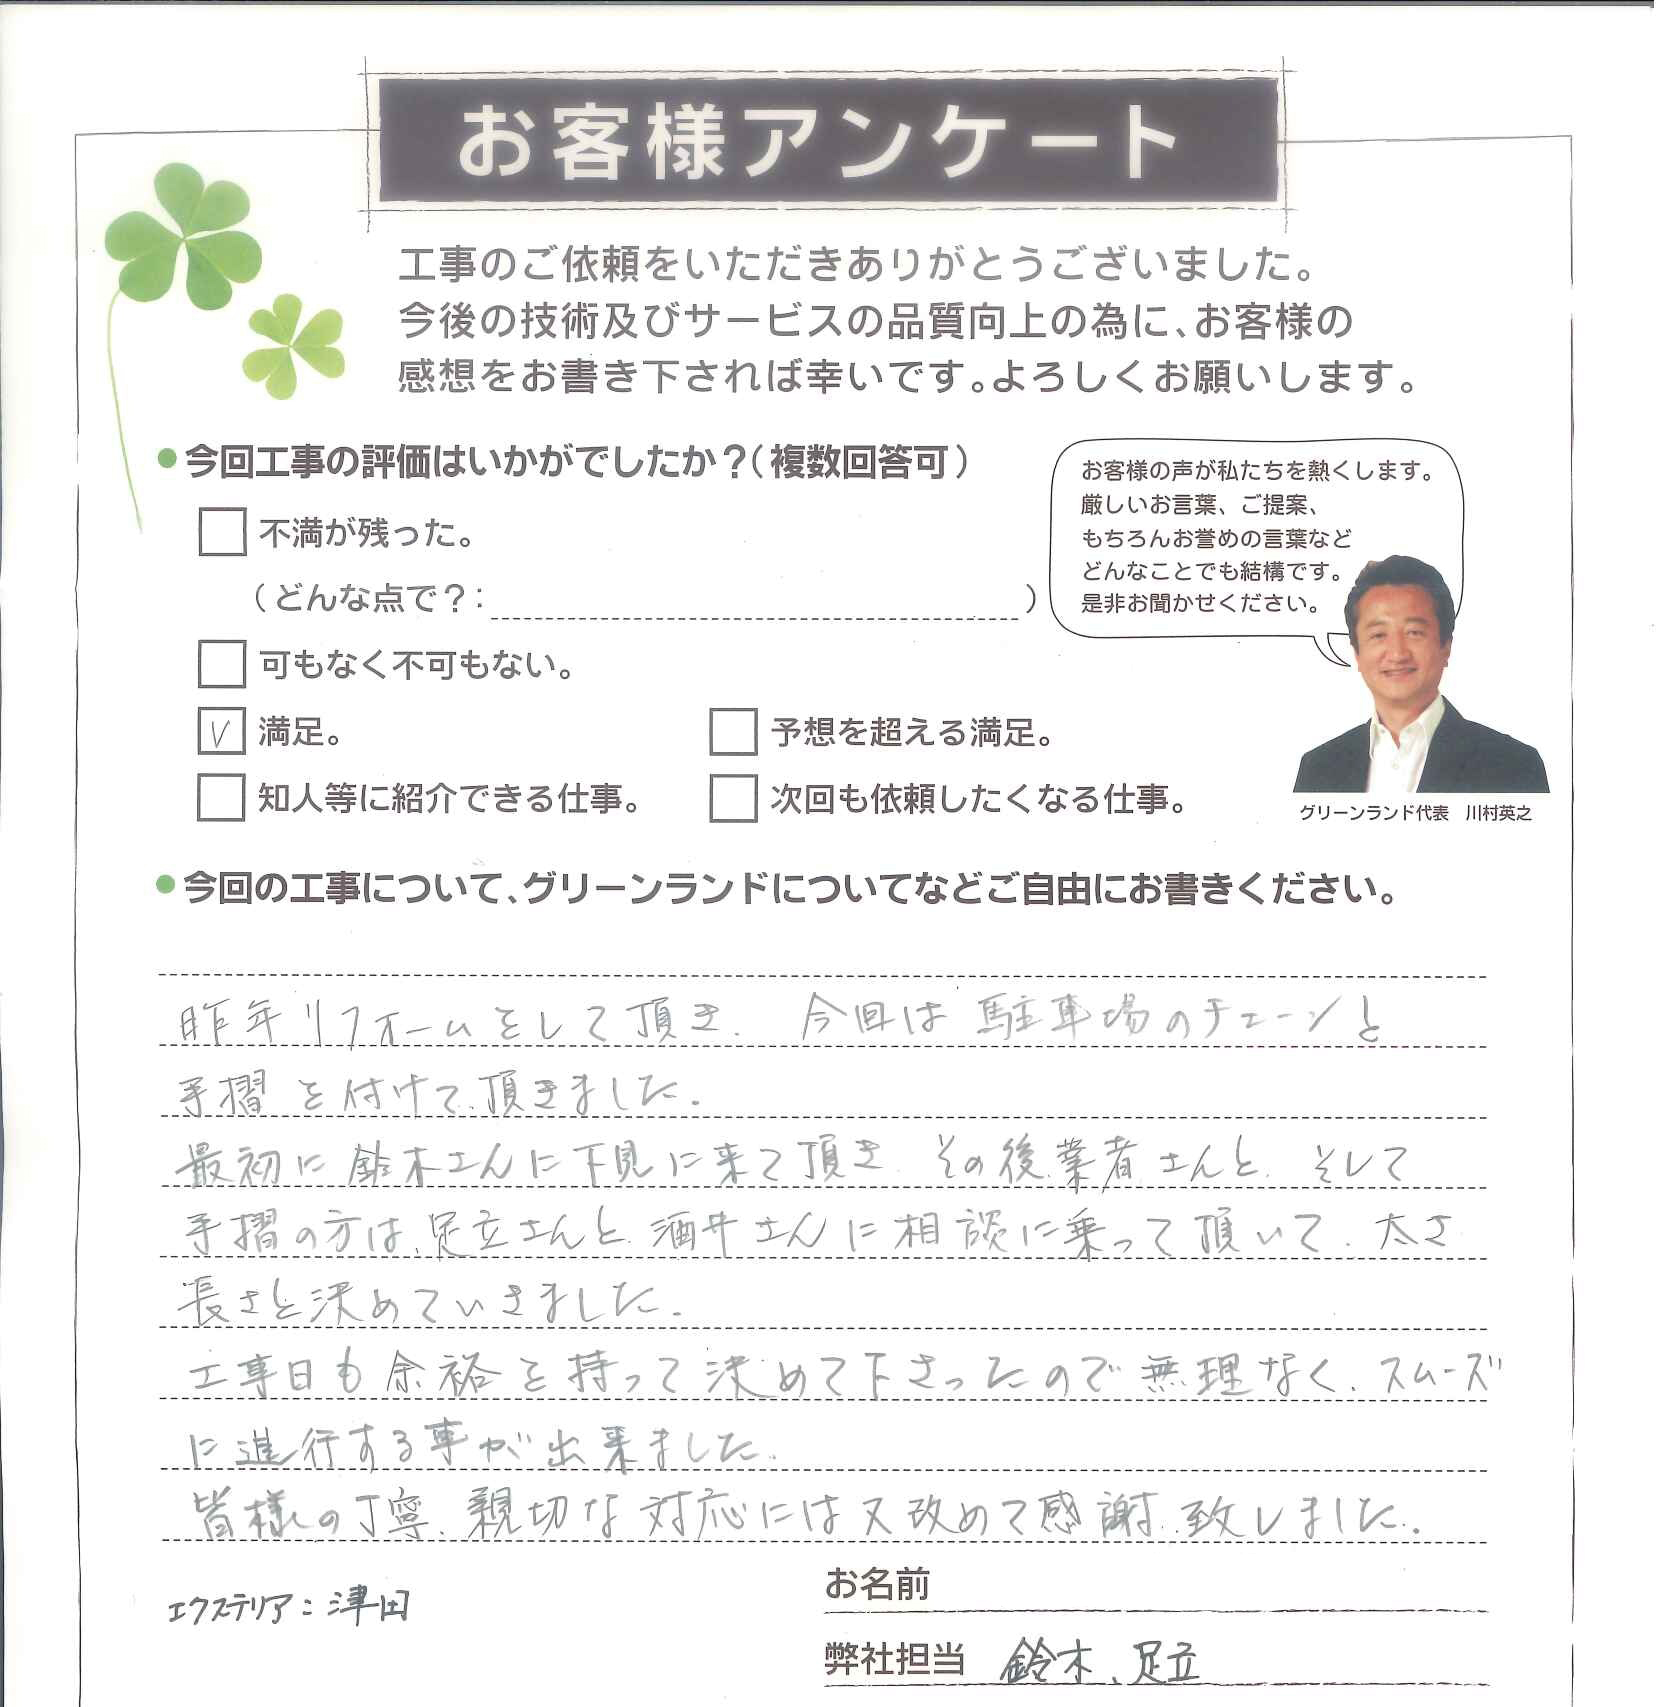 お客様アンケート
工事のご依頼をいただきありがとうございました。
今後の技術及びサービスの品質向上の為に、お客様の
感想をお書き下されば幸いです。よろしくお願いします。
●今回工事の評価はいかがでしたか？（複数回答可）
お客様の声が私たちを熱くします。
厳しいお言葉、ご提案、
もちろんお誉めの言葉など
どんなことでも結構です。
是非お聞かせください。
グリーンランド代表　川村英之
□ 不満が残った。
（どんな点で？：　　　）
□ 可もなく不可もない。
☑ 満足。
□ 予想を超える満足。
□ 知人等に紹介できる仕事。
□ 次回も依頼したくなる仕事。
●今回の工事について、グリーンランドについてなどご自由にお書きください。
昨年リフォームをして頂き、今回は駐車場のチェーンと
手摺を付けて頂きました。
最初に鈴木さんに下見に来て頂き、その後業者さんと、そして
手摺の方は、足立さんと酒井さんに相談に乗って頂いて、太さ
長さと決めていきました。
工事日も余裕を持って決めて下さったので無理なく、スムーズ
に進行する事が出来ました。
皆様の丁寧、親切な対応には又改めて感謝致しました。
エクステリア：津田
お名前
弊社担当　鈴木、足立